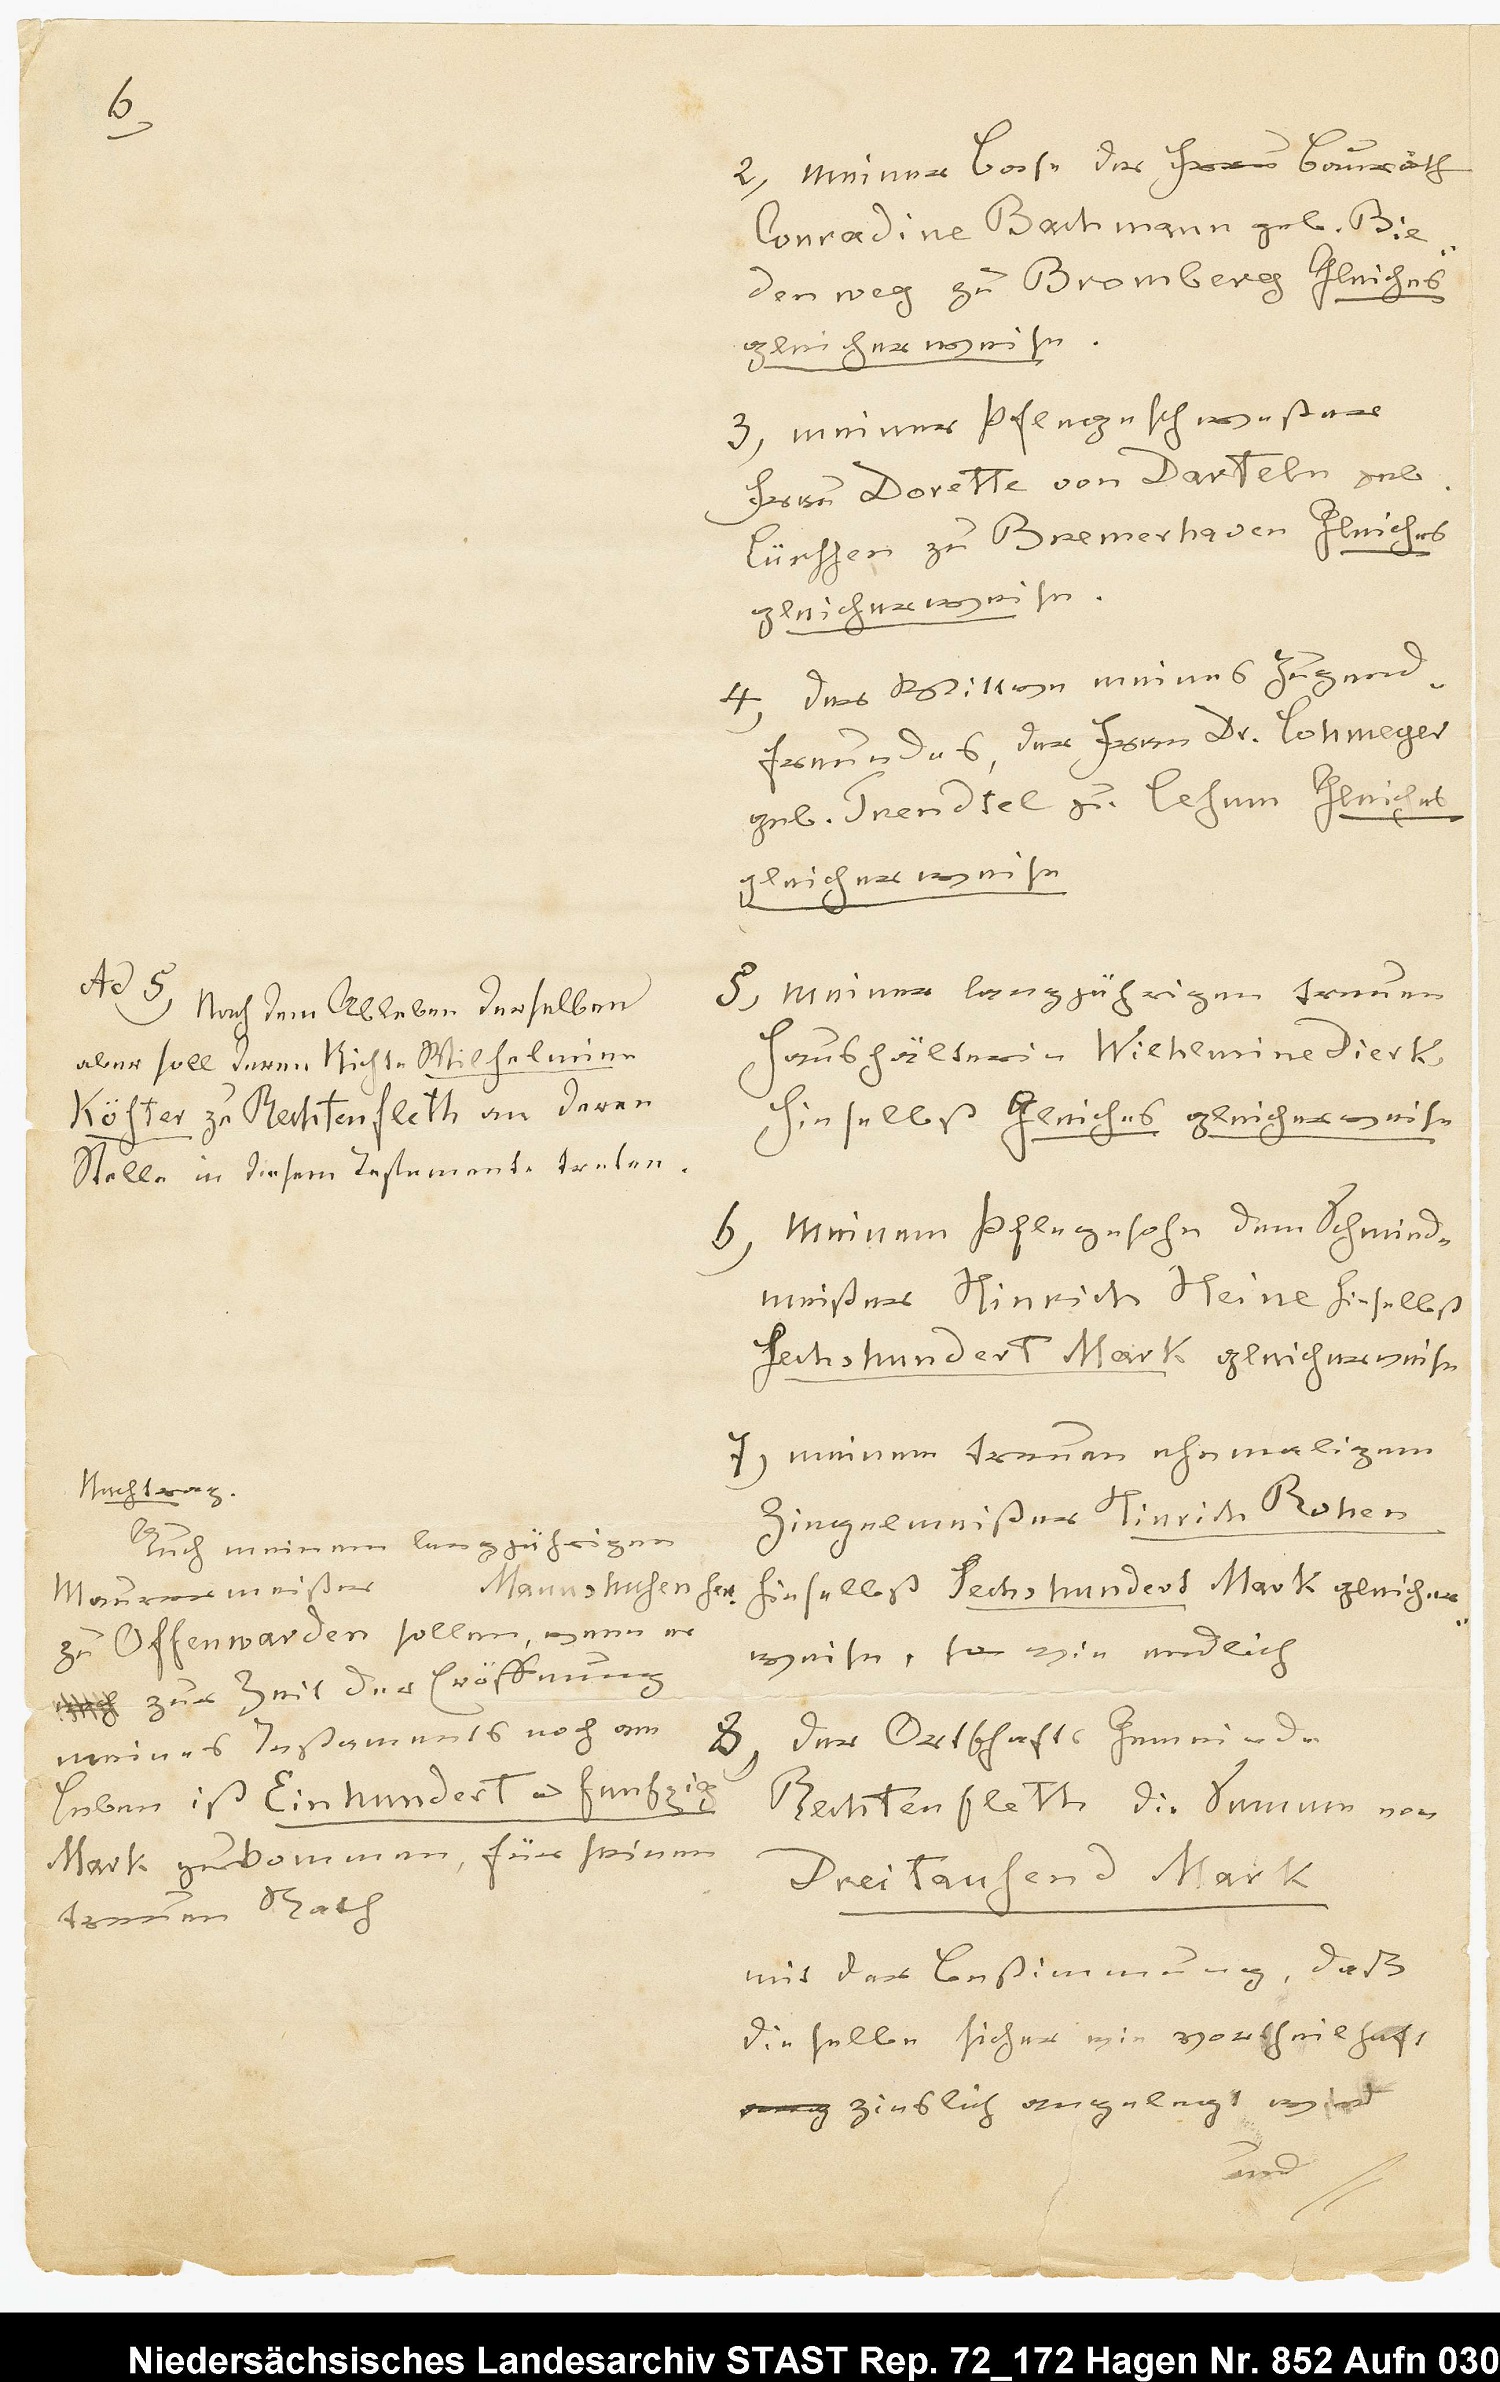 6,
2, meiner Base der Frau Baurath
Conradine Bachmann geb. Bie-
denweg zu Bromberg Gleiches
gleicherweise.
3, meiner Pflegeschwester
Frau Dorette von Darteln geb.
Lürssen zu Bremerhaven Gleiches
gleicherweise.
4, der Wittwe meines Jugend-
freundes, der Frau Dr. Lohmeyer
geb. Trendtel zu Lesum Gleiches
gleicherweise
Ad 5, Nach dem Ableben derselben
aber soll deren Nichte Wilhelmine
Köster zu Rechtenfleth an deren
Stelle in diesem Testamente treten.
5, meiner langjährigen treuen
Haushälterin Wilhelmine Dierks
hieselbst Gleiches gleicherweise
6, meinem Pflegesohn dem Schmiede-
meister Hinrich Heine hieselbst
Sechshundert Mark gleicherweise
7, meinem treuen ehemaligen
Ziegelmeister Hinrich Rohen
hieselbst Sechshundert Mark gleicher-
weise, so wie endlich
Nachtrag.
Auch meinem langjährigen
Maurermeister Mannshusen sen.
zu Offenwarden sollen, wenn er
noch zur Zeit der Eröffnung
meines Testaments noch am
Leben ist Einhundert u funfzig
Mark zukommen, für seinen
treuen Rath
8, der Ortschafts Gemeinde
Rechtenfleth die Summe von
Dreitausend Mark
mit der Bestimmung, daß
dieselbe sicher wie vortheilhaft
zinslich angelegt wird
und
Niedersächsisches Landesarchiv STAST Rep. 72_172 Hagen Nr. 852 Aufn 030